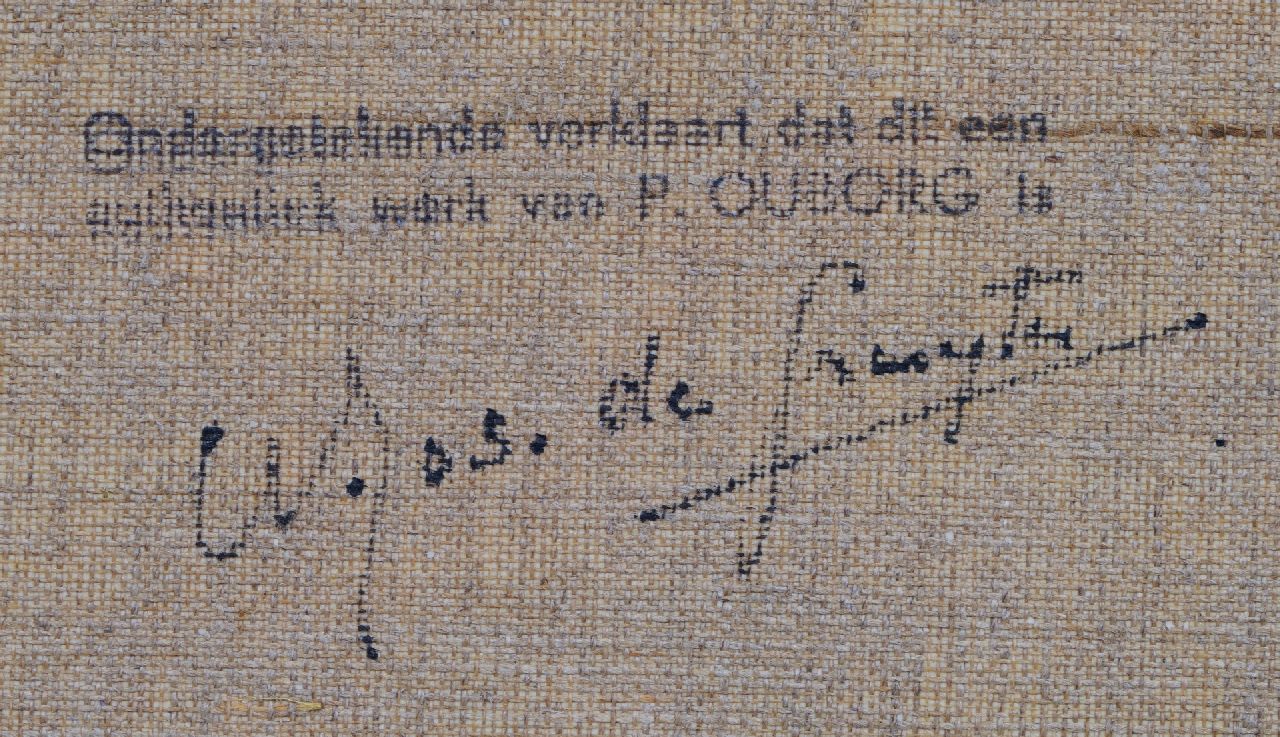 Ondergetekende verklaart dat dit een
authentiek werk van P. OUBORG is
W. Jos. de